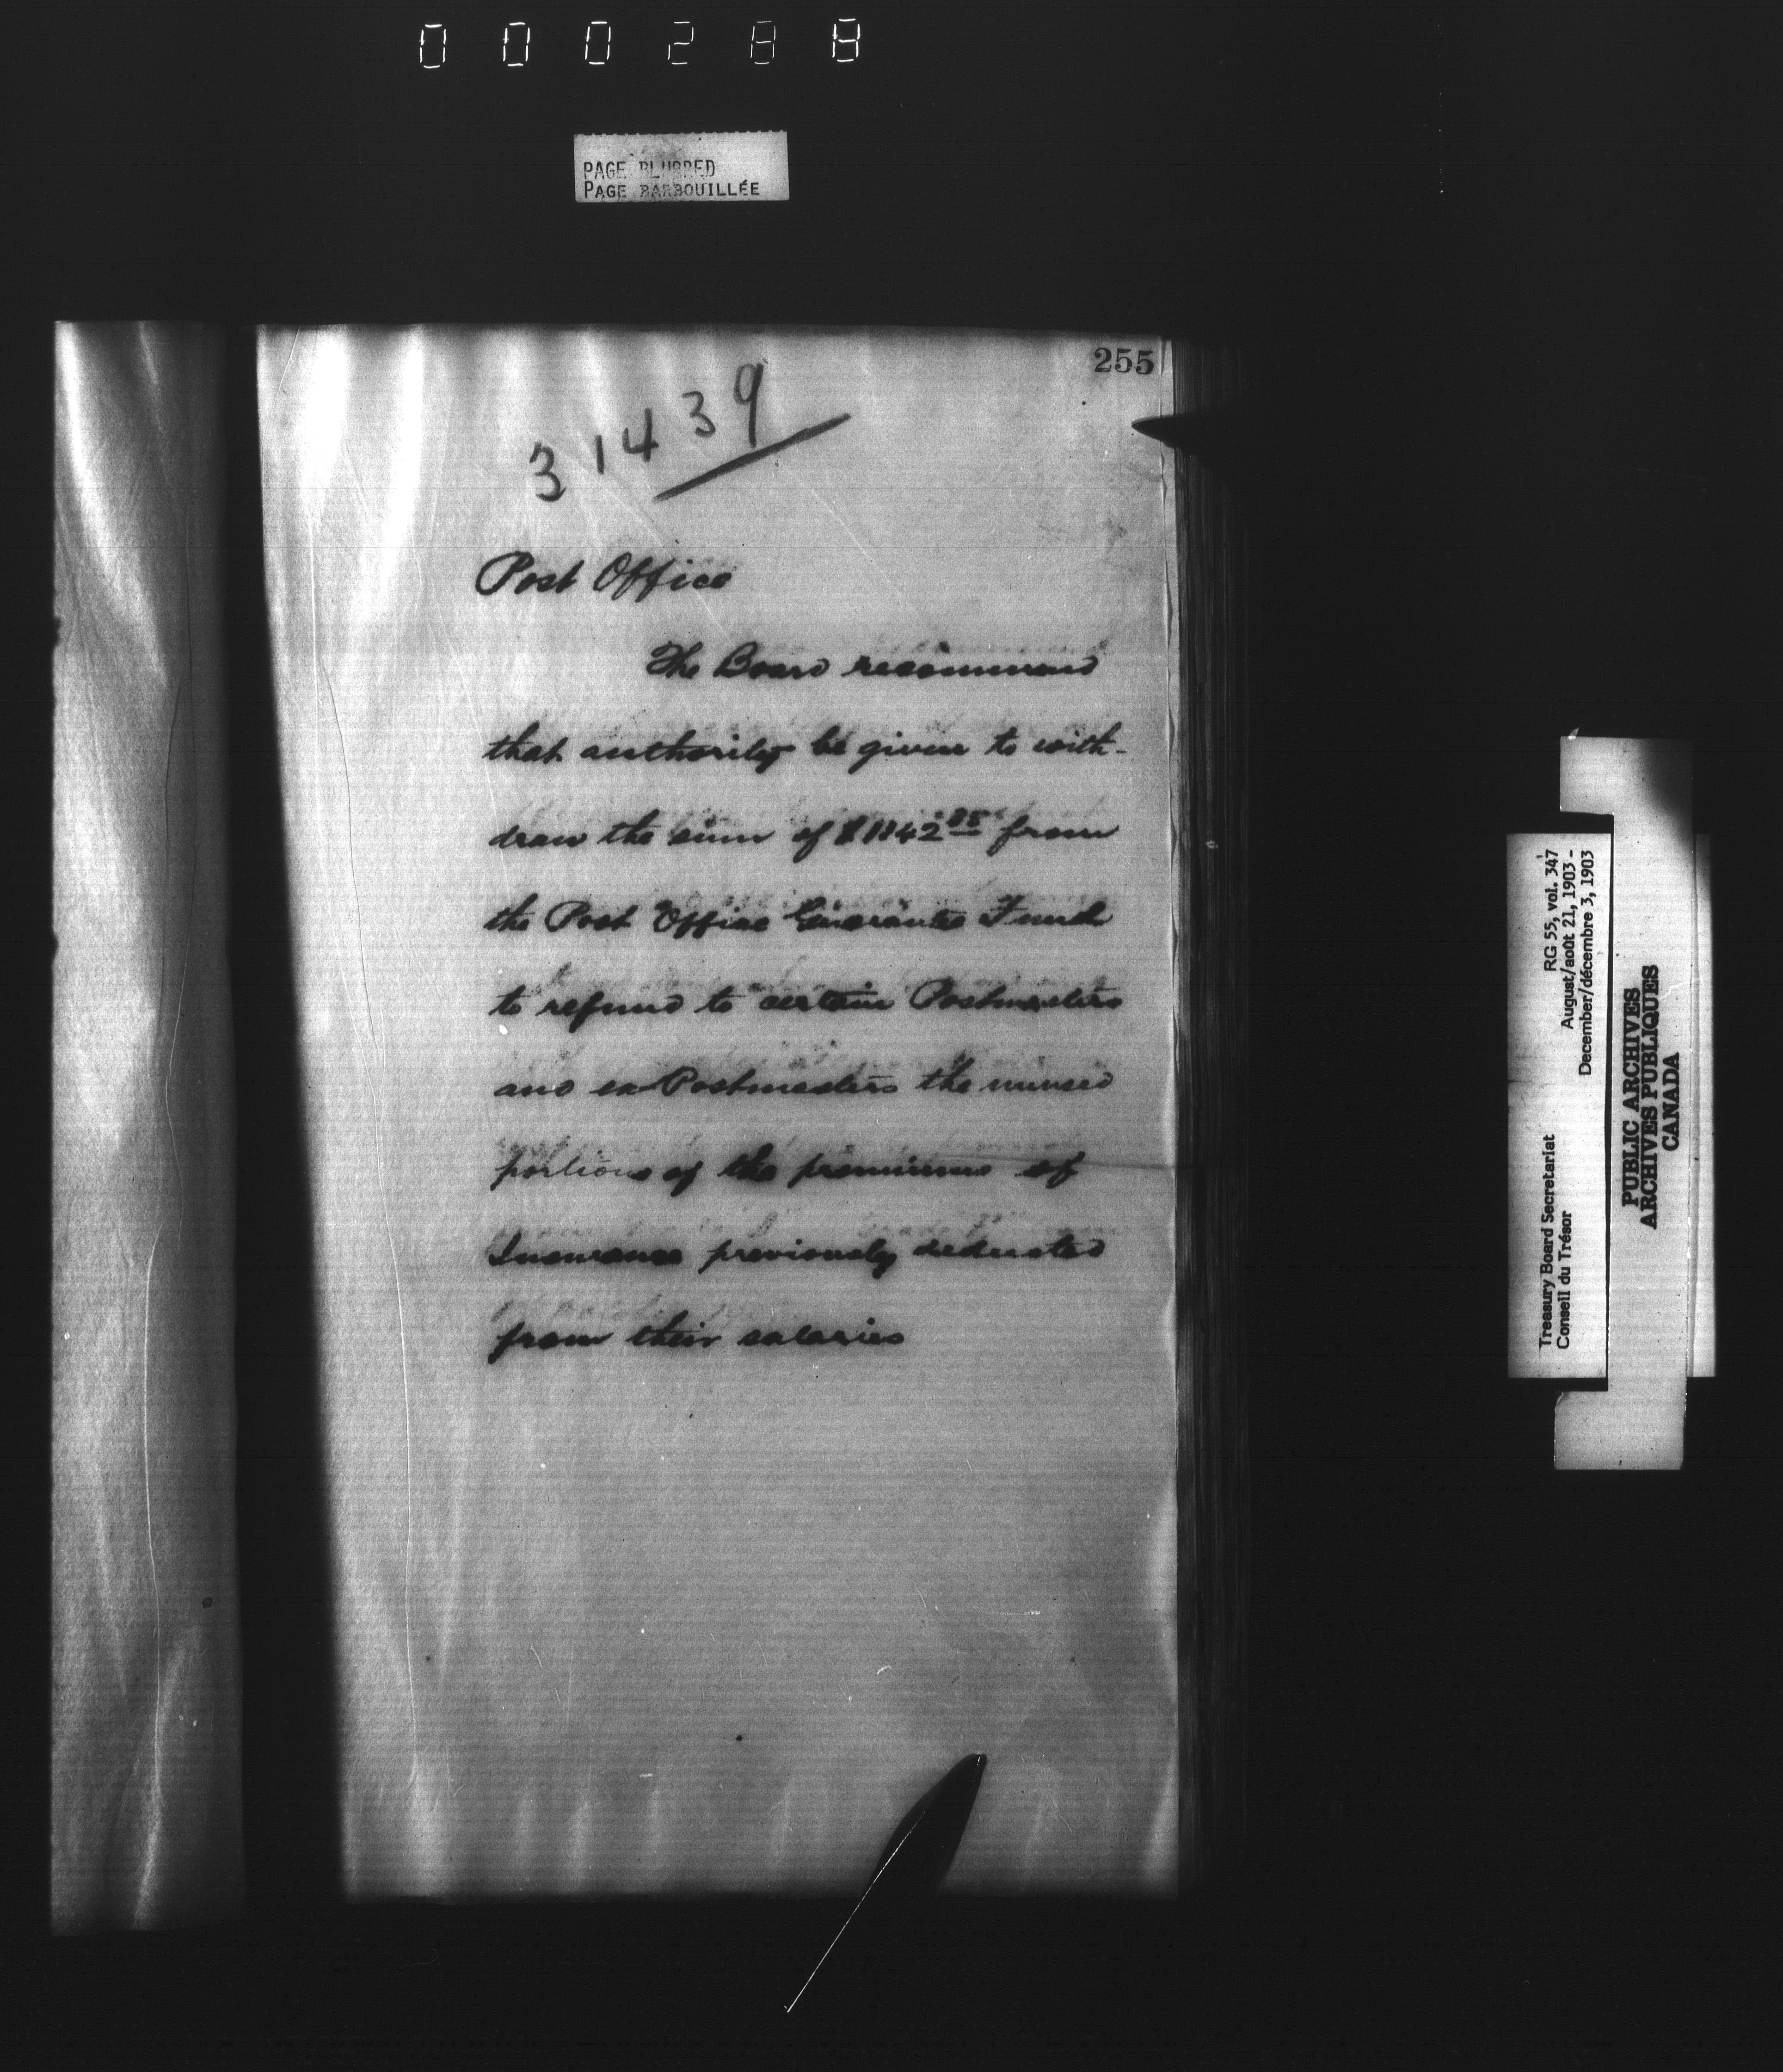 000288
PAGE BLURRED
PAGE BARBOUILLÉE
255
31439
Post Office
The Board recommend
that authority be given to with-
draw the sum of from
the Post Office Guarantee Fund
to refund to certain Postmasters
and ex-Postmasters the unused
portions of the premiums of
Insurance previously deducted
from their salaries
Treasury Board Secretariat RG 55, vol. 347
Conseil du Trésor August/août 21, 1903 -
December/décembre 3, 1903
PUBLIC ARCHIVES
ARCHIVES PUBLIQUES
CANADA